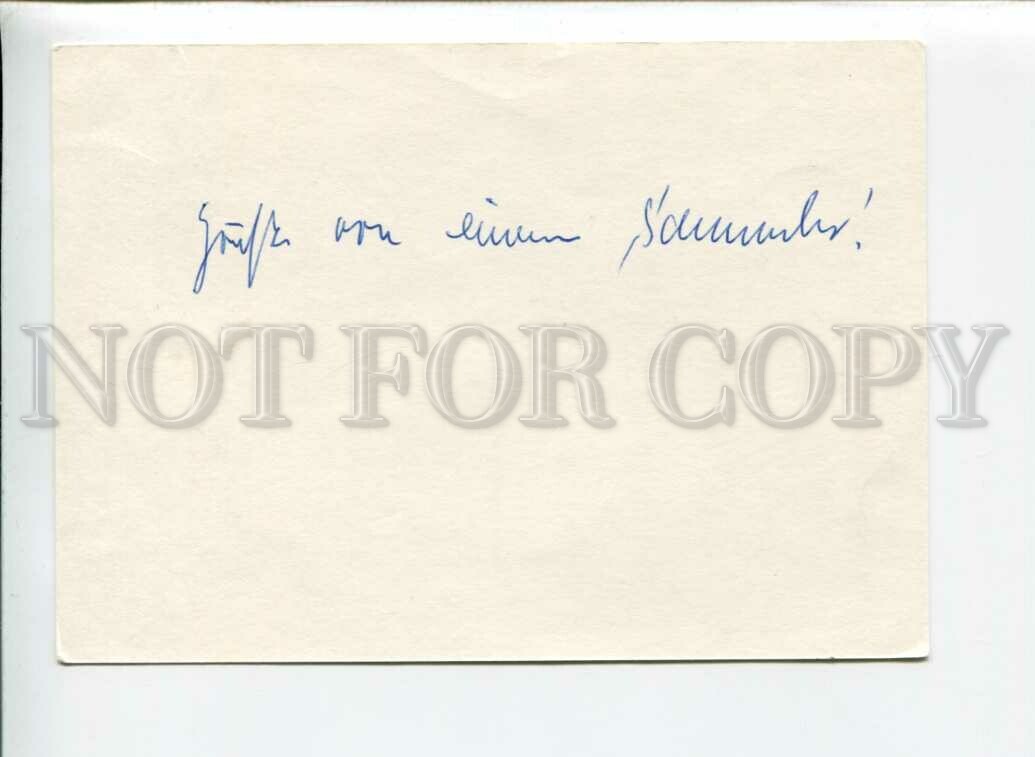 Grüße von einem Sammler!
NOT FOR COPY